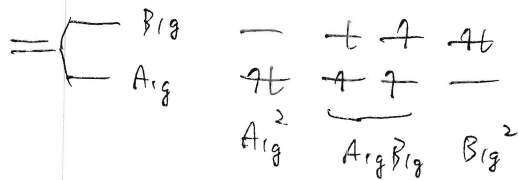 B1g
A1g
A1g² A1gB1g B1g²